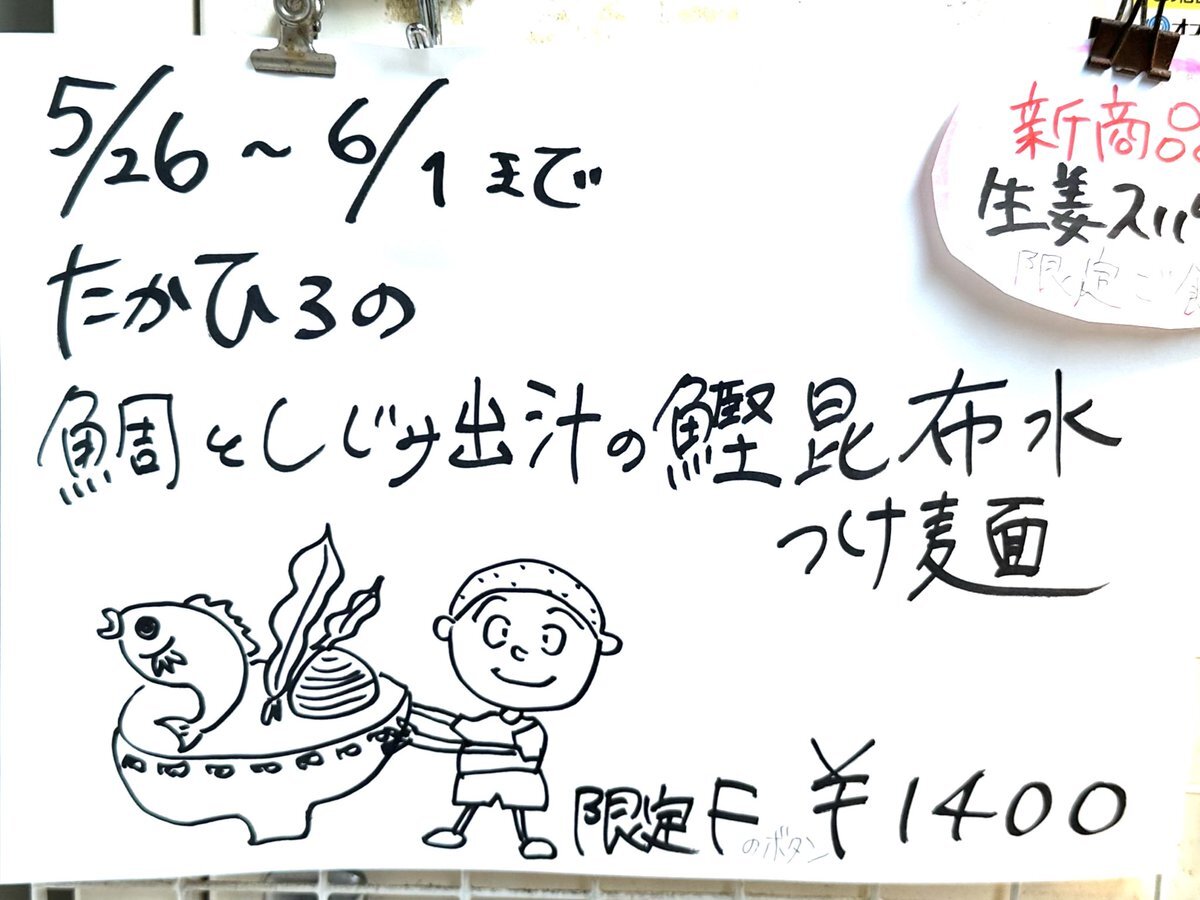 5/26〜6/1まで
たかひろの
鯛としじみ出汁の鰹昆布水
つけ麺
限定F
のボタン
¥1400
新商品
生姜スパ
限定ご
オ